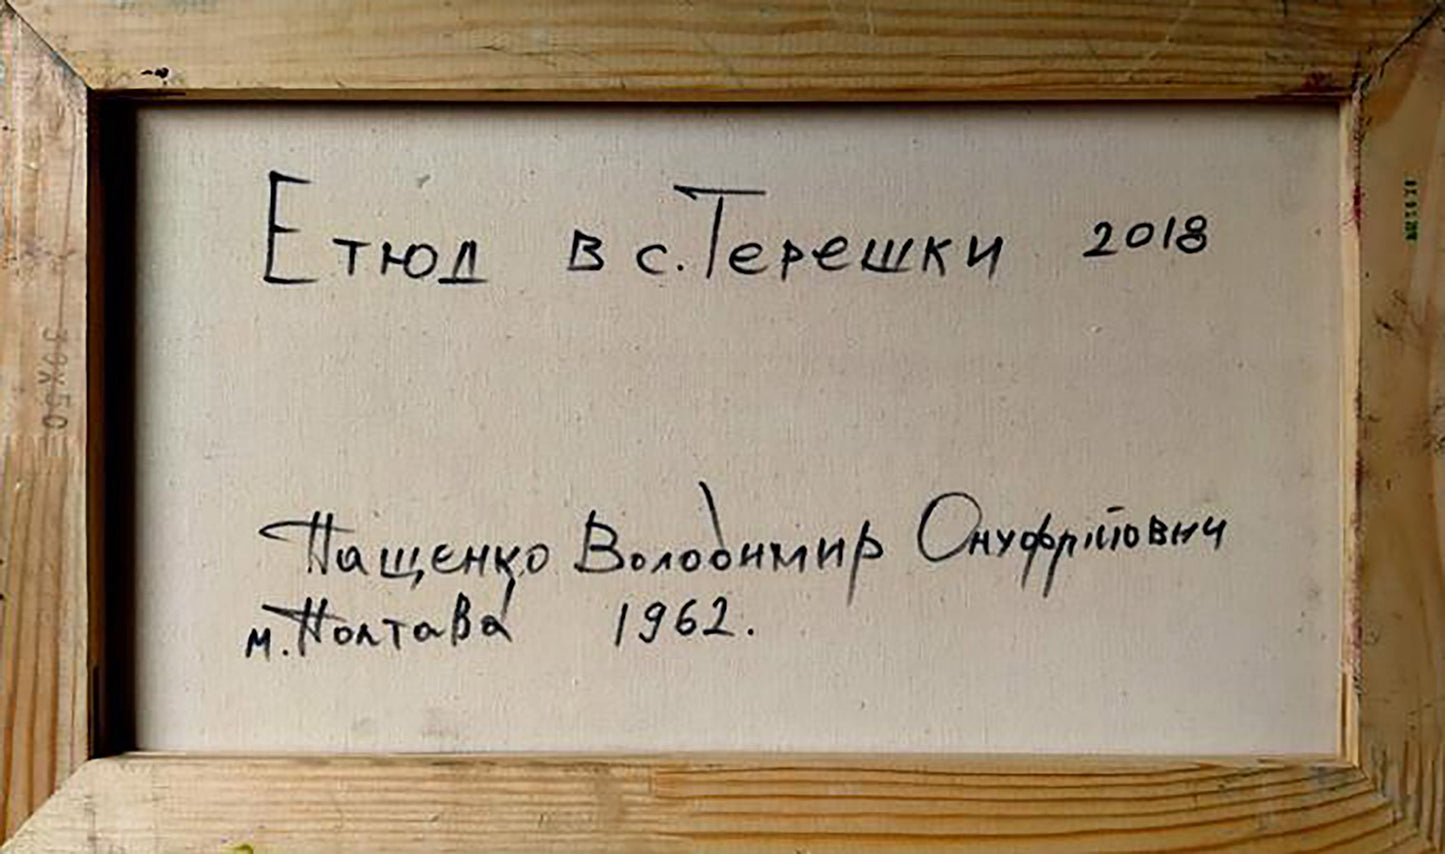 Етюд в с. Терешки 2018
Пащенко Володимир Онуфрійович
м. Полтава 1962.
30х50